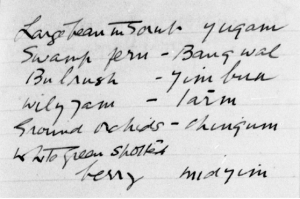 Large bean in Scrub yugam
Swamp fern - Bangwal
Bulrush - yimbun
wily yam - Tarm
Ground orchids - Chingum
White green spotted
berry midyim